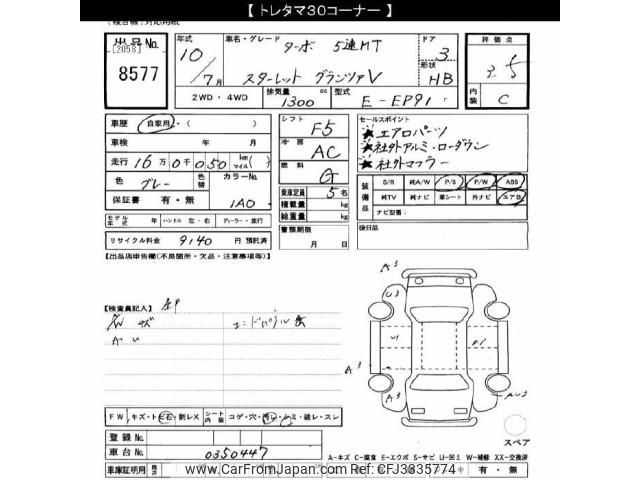 【 トレタマ30コーナー 】
出品No.
[2058]
8577
年式
10 / 7月
車名・グレード
ターボ 5速MT
スターレット グランツァV
ドア
3
形状
HB
評価点
3.5
内装
C
2WD・4WD
排気量
1300 cc
型式
E-EP91
車歴 自家用・( )
車検 年 月
走行 16万0千050 km マイル ( )
色 グレー 色替 カラーNo. 1A0
保証書 有・無
モデル年式 年 ハンドル 左・右 ディーラー・並行
リサイクル料金 9140 円 預託済
シフト F5
冷房 AC
燃料 G
乗車定員 5名
積載量 kg
総重量 kg
書類期限
月 日
セールスポイント
★エアロパーツ
★社外アルミ・ローダウン
★社外マフラー
装備品
S/R 純A/W P/S P/W ABS
純TV 純ナビ 革シート 外ナビ エアB
ナビ型番:
後日品
【出品店申告欄(不良箇所・欠品・注意事項等)】
【検査員記入】
A3
U3
U1
A1
A3
A3
AU2
スペア
FW キズ・トビ石・割レX シート内装 コゲ・穴・汚レ・シミ・破レ・スレ
登録No.
車台No. 0350447
A-キズ C-腐食 E-エクボ S-サビ U-凹ミ W-補修 XX-交換済
車庫証明用
有・無
www.CarFromJapan.com Ref: CFJ3835774